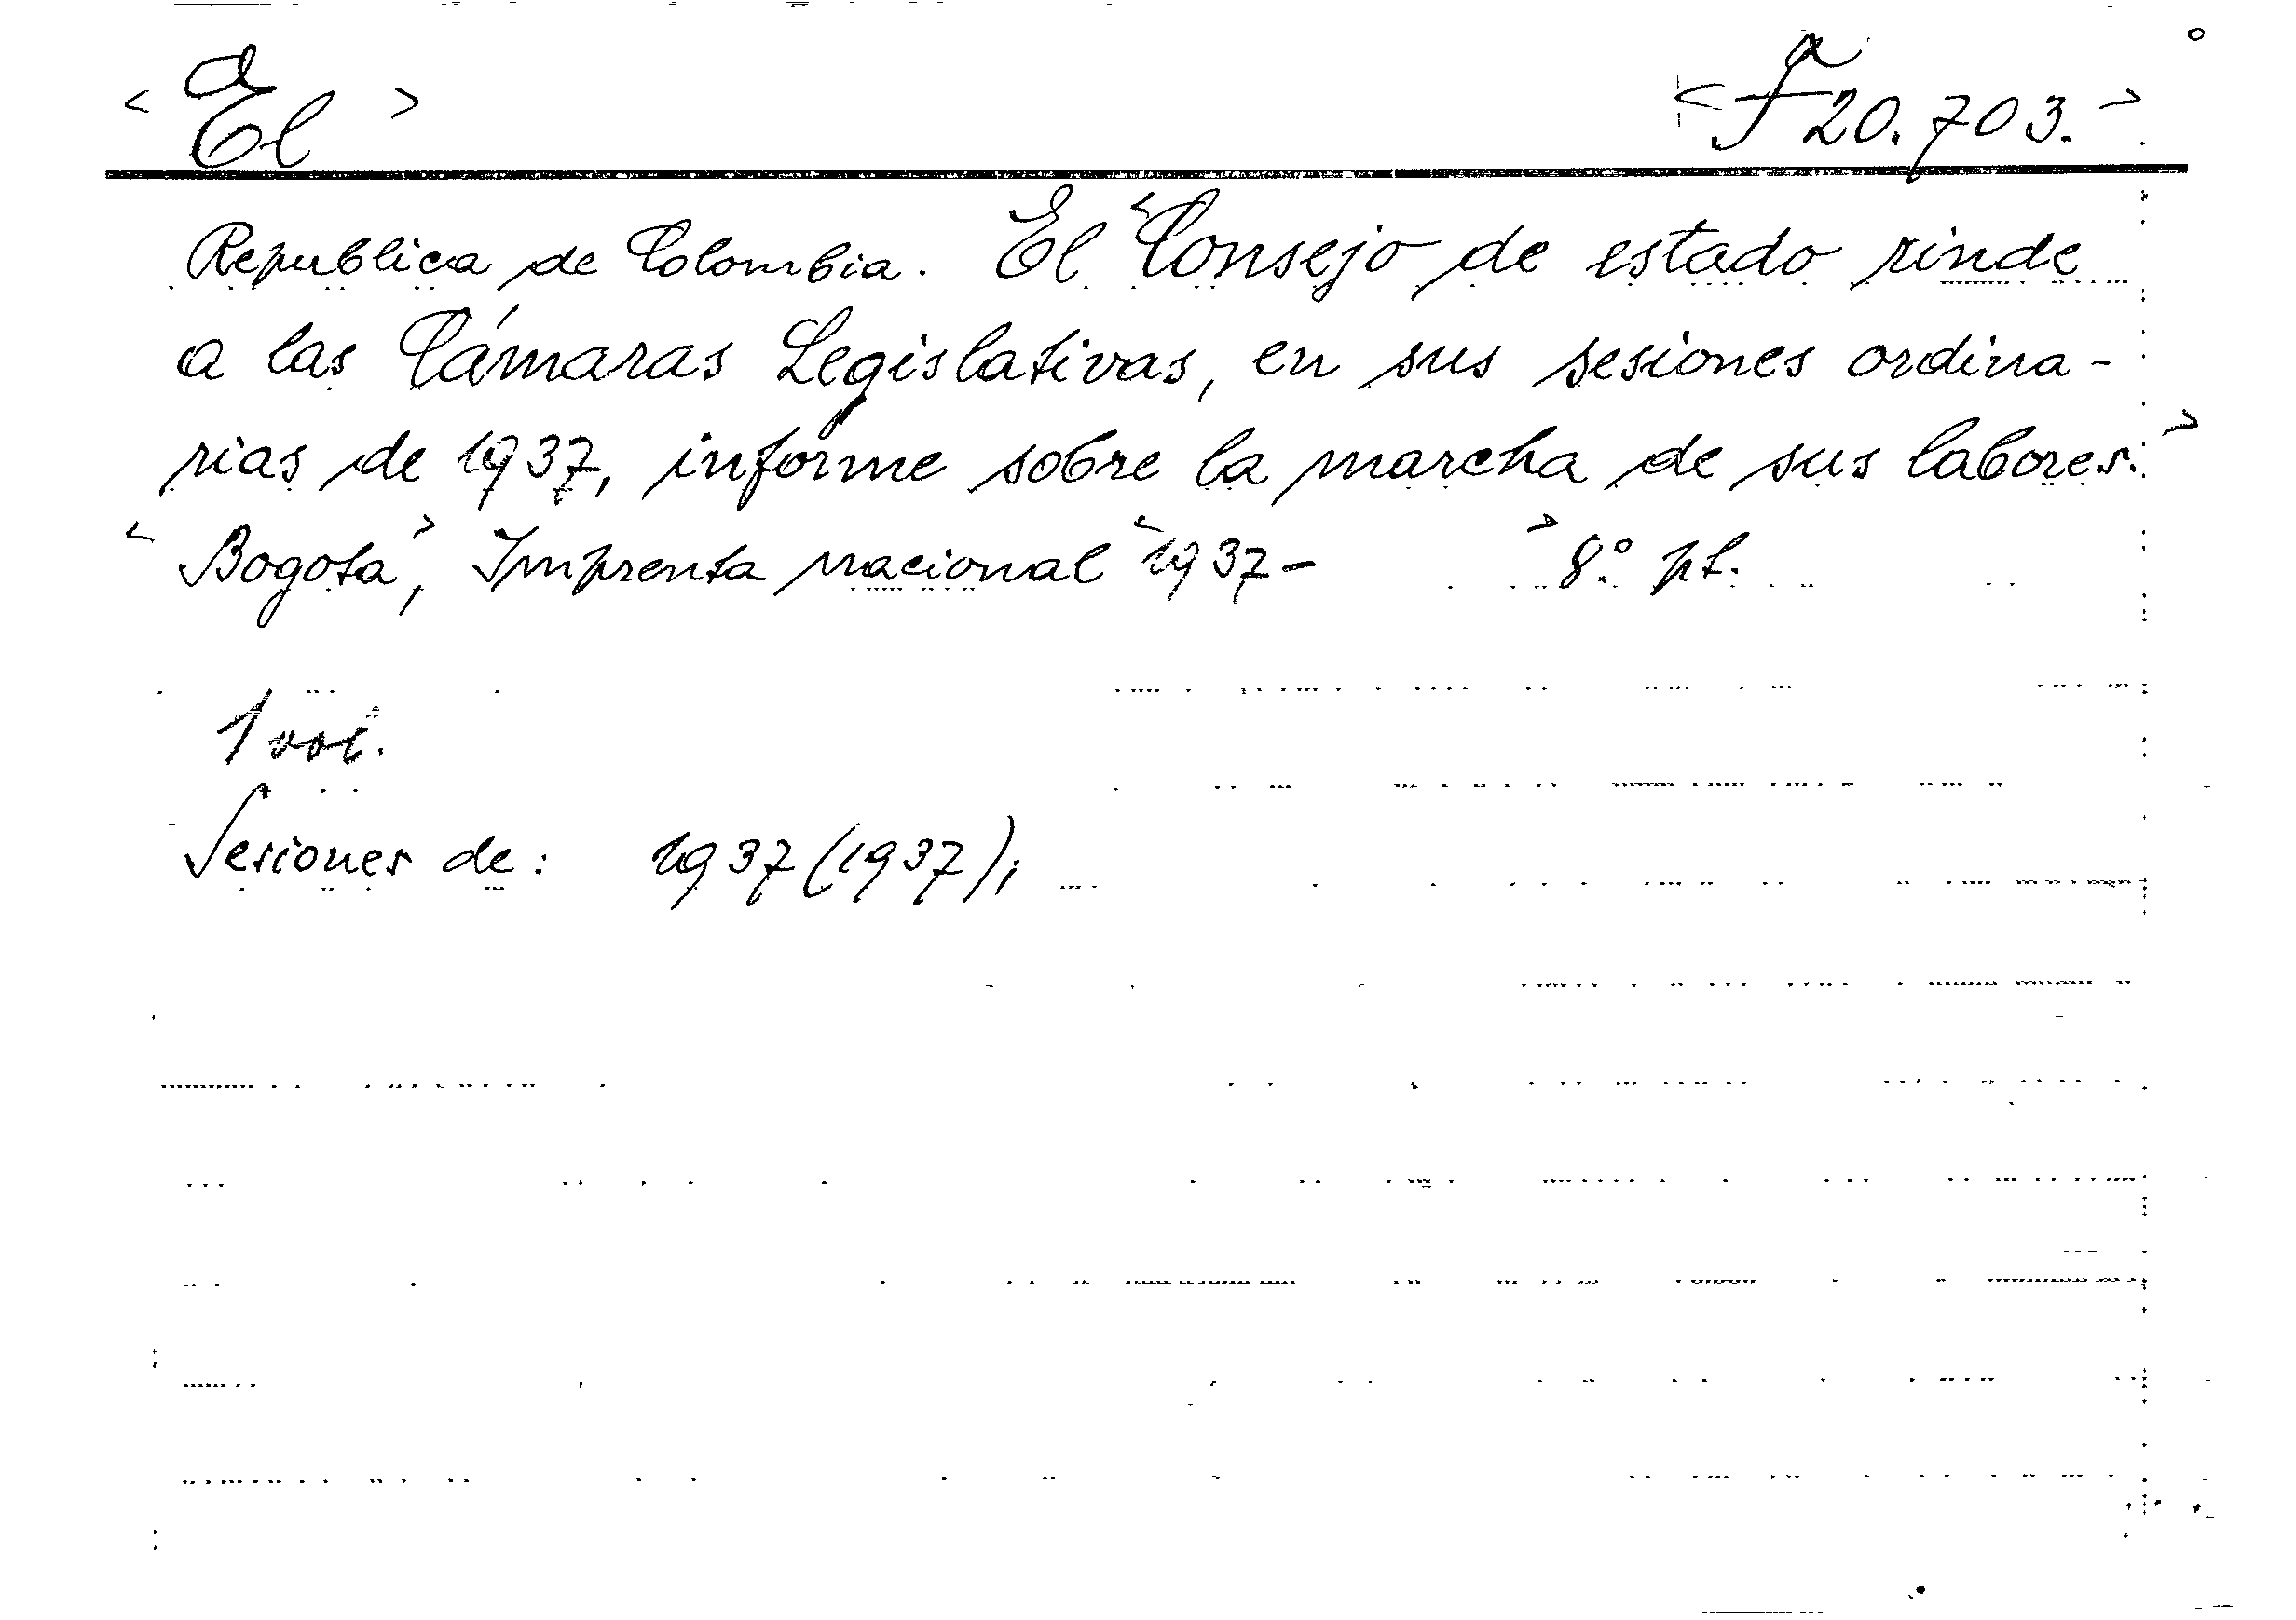 <El> <Fa 20.703.>
Republica de Colombia. El <Consejo de estado rinde
a las Cámaras Legislativas, en sus sesiones ordina-
rias de 1937, informe sobre la marcha de sus labores.>
<Bogotá>, Imprenta nacional <1937- > 8.° pl.
1 vol.
Sesiones de: 1937 (1937);